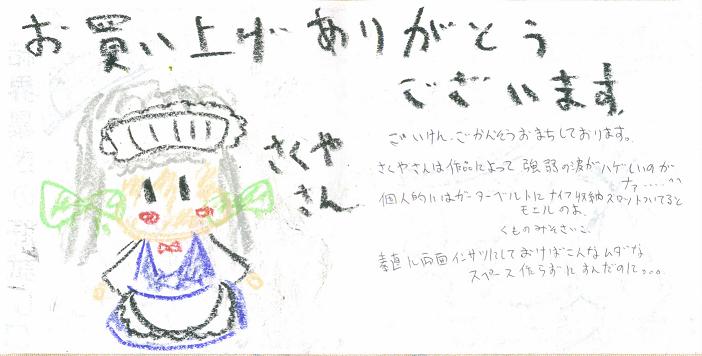 お買い上げありがとう
ございます
さくや
さん
ごいけん、ごかんそうおまちしております。
さくやさんは作品によって強弱の波がハゲしいのが
ナァ……^^
個人的にはガーターベルトにナイフ収納スロットついてると
モエルのよ、
くものみそさいこ
素直に両面インサツにしておけばこんなムダな
スペース作らずにすんだのに…。